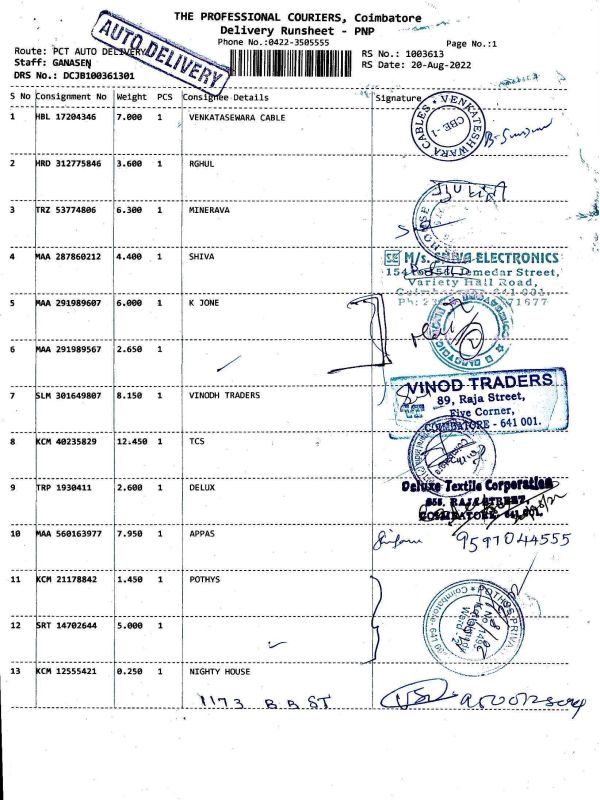 THE PROFESSIONAL COURIERS, Coimbatore
Delivery Runsheet - PNP
Phone No.:0422-3505555
Page No.:1
AUTO DELIVERY
Route: PCT AUTO DELIVERY
Staff: GANASEN
DRS No.: DCJB100361301
RS No.: 1003613
RS Date: 20-Aug-2022
S No Consignment No Weight PCS Consignee Details Signature
1 HBL 17204346 7.000 1 VENKATASEWARA CABLE
VENKATESHWARA CABLES CBE-1
2 HRD 312775846 3.600 1 RGHUL
3 TRZ 53774806 6.300 1 MINERAVA
4 MAA 287860212 4.400 1 SHIVA
M/s. SHIVA ELECTRONICS
Jemedar Street,
Variety Hall Road,
5 MAA 291989607 6.000 1 K JONE
6 MAA 291989567 2.650 1
7 SLM 301649807 8.150 1 VINODH TRADERS
VINOD TRADERS
89, Raja Street,
Five Corner,
COIMBATORE - 641 001.
8 KCM 40235829 12.450 1 TCS
9 TRP 1930411 2.600 1 DELUX
Deluxe Textile Corporation
RAJA STREET,
COIMBATORE
10 MAA 560163977 7.950 1 APPAS
9597044555
11 KCM 21178842 1.450 1 POTHYS
POTHYS PRIVA
Coimbatore-641 001
12 SRT 14702644 5.000 1
13 KCM 12555421 0.250 1 NIGHTY HOUSE
1173 B.B ST